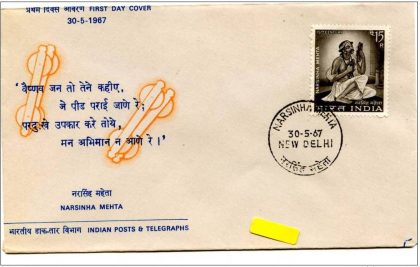 प्रथम दिवस आवरण FIRST DAY COVER
30-5-1967
१५ 15
P
NARSINHA MEHTA
भारत INDIA
'वैष्णव जन तो तेने कहीए,
जे पीड पराई जाणे रे;
परदुःखे उपकार करे तोये,
मन अभिमान न आणे रे।'
NARSINHA MEHTA
30-5-67
NEW DELHI
नरसिंह महेता
नरसिंह महेता
NARSINHA MEHTA
भारतीय डाक-तार विभाग INDIAN POSTS & TELEGRAPHS